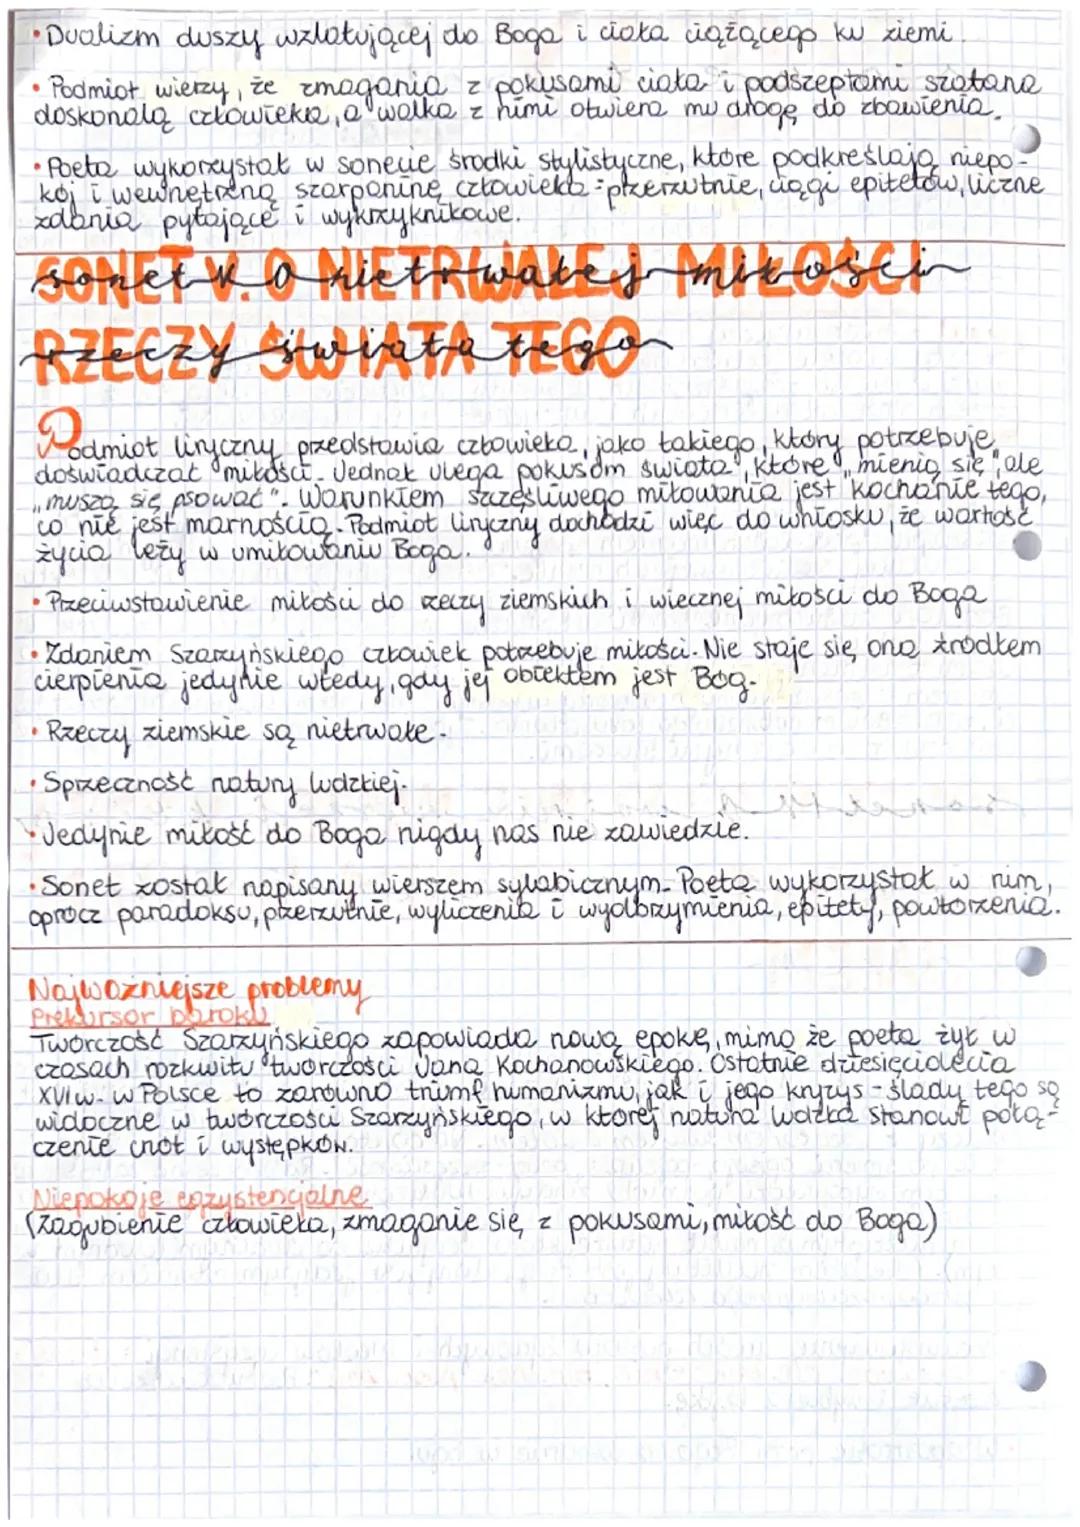 • Dualizm duszy wzlatującej do Boga i ciała ciążącego ku ziemi.
• Podmiot wierzy, że zmagania z pokusami ciała i podszeptami szatana
doskonalą człowieka, a walka z nimi otwiera mu drogę do zbawienia.
• Poeta wykorzystał w sonecie środki stylistyczne, które podkreślają niepo-
kój i wewnętrzną szarpaninę człowieka: przerzutnie, ciągi epitetów, liczne
zdania pytające i wykrzyknikowe.
SONET V. O NIETRWAŁEJ MIŁOŚCI
RZECZY ŚWIATA TEGO
Podmiot liryczny przedstawia człowieka, jako takiego, który potrzebuje
doświadczać miłości. Jednak ulega pokusom świata, które „mienią się", ale
„muszą się psować". Warunkiem szczęśliwego miłowania jest kochanie tego,
co nie jest marnością. Podmiot liryczny dochodzi więc do wniosku, że wartość
życia leży w umiłowaniu Boga.
• Przeciwstawienie miłości do rzeczy ziemskich i wiecznej miłości do Boga
• Zdaniem Szarzyńskiego człowiek potrzebuje miłości. Nie staje się ona źródłem
cierpienia jedynie wtedy, gdy jej obiektem jest Bóg.
• Rzeczy ziemskie są nietrwałe.
• Sprzeczność natury ludzkiej.
• Jedynie miłość do Boga nigdy nas nie zawiedzie.
• Sonet został napisany wierszem sylabicznym. Poeta wykorzystał w nim,
oprócz paradoksu, przerzutnie, wyliczenia i wyolbrzymienia, epitety, powtórzenia.
Najważniejsze problemy
Prekursor baroku
Twórczość Szarzyńskiego zapowiada nową epokę, mimo że poeta żył w
czasach rozkwitu twórczości Jana Kochanowskiego. Ostatnie dziesięciolecia
XVI w. w Polsce to zarówno triumf humanizmu, jak i jego kryzys - ślady tego są
widoczne w twórczości Szarzyńskiego, w której natura ludzka stanowi połą-
czenie cnót i występków.
Niepokoje egzystencjalne
(Zagubienie człowieka, zmaganie się z pokusami, miłość do Boga)